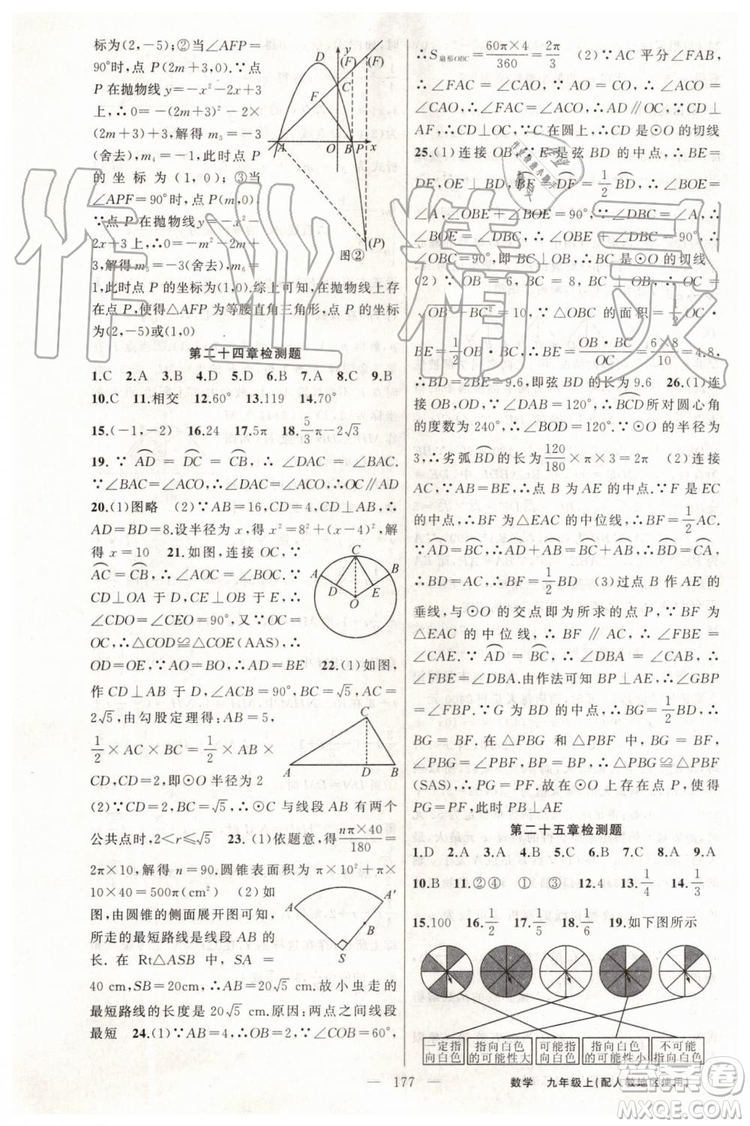 标为(2,-5);②当∠AFP=
90°时,点 P(2m+3,0).∵
点 P 在抛物线 y=-x²-2x+3
上,∴0=-(2m+3)²-2×
(2m+3)+3.解得 m₃=-3
(舍去),m₄=-1,此时点 P
的坐标为(1,0);③当
∠APF=90°时,点 P(m,0).
∵点 P 在抛物线 y=-x²-
2x+3 上,∴0=-m²-2m+
3.解得 m₅=-3(舍去),m₆=
1,此时点 P 的坐标为(1,0).综上可知,在抛物线上存在
点 P,使得△AFP 为等腰直角三角形,点 P 的坐标
为(2,-5)或(1,0)
y (F) (F)
D C
A O B P x
(P)
图②
第二十四章检测题
1.C 2.A 3.B 4.D 5.D 6.B 7.A 8.C 9.B
10.C 11.相交 12.60° 13.119 14.70°
15.(-1,-2) 16.24 17.5π 18.5/3π-2√3
19.∵AD=DC=CB,∴∠BAC=∠DAC=∠DCA.∵
∠BAC=∠OCA,∴∠DAC=∠OCA,∴OC∥AD
20.(1)图略 (2)∵AB=16,CD=4,CD⊥AB,∴
AD=BD=8.设半径为 x,得 x²=8²+(x-4)²,解
得 x=10 21.如图,连接 OC,∵
AC=CB,∴∠AOC=∠BOC.∵
CD⊥OA 于 D,CE⊥OB 于 E,∴
∠CDO=∠CEO=90°.又∵OC=
OC,∴△COD≌△COE(AAS),∴
OD=OE,∴AD=BE 22.(1)如图,
作 CD⊥AB 于 D,∵∠C=90°,BC=√5,AC=
2√5,由勾股定理得:AB=5,
1/2×AC×BC=1/2×AB×
CD,解得 CD=2,即圆 C 与
AB 相切时,⊙C 半径为 2
(2)∵⊙C 与线段 AB 有两个
公共点时,2<r≤√5 23.(1)依题意,得nπ×40/180=
2π×10,解得 n=90.圆锥表面积=
π×10²+π×10×40=500π(cm²) (2)如
图,由圆锥的侧面展开图可知,小虫
所走的最短路线是线段 AB 的
长.在 Rt△ASB 中,SA=
40 cm,SB=20 cm,∴AB=20√5 cm,故小虫走的
最短路线的长度是 20√5 cm.原因:两点之间线段
最短 24.(1)∵AB=4,∴OB=2,∵∠COB=60°,
∴S扇形OBC=60π×4/360=2π/3 (2)∵AC 平分∠FAB,∴
∠FAC=∠CAO,∵AO=CO,∴∠ACO=
∠CAO,∴∠FAC=∠ACO,∴AD∥OC,∵CD⊥
AF,∴CD⊥OC,∵C 在圆上,∴CD 是⊙O 的切线
25.(1)连接 OB,∵E 是弦 BD 的中点,∴BE=
DE,OE⊥BD,BF=DF=1/2BD,∴∠BOE=
∠A,∠OBE+∠BOE=90°.∵∠DBC=∠A,∴
∠BOE=∠DBC,∴∠OBE+∠DBC=90°,∴
∠OBC=90°,即 BC⊥OB,∴BC 是⊙O 的切线
(2)∵OB=6,BC=8,BC⊥OB,∴OC=
√OB²+BC²=10.∵△OBC 的面积=1/2OC·
BE=1/2OB·BC,∴BE=OB·BC/OC=6×8/10=4.8,
∴BD=2BE=9.6,即弦 BD 的长为 9.6 26.(1)连
接 OB,OD,∵∠DAB=120°,∴BCD所对圆心角的
的度数为 240°,∴∠BOD=120°.∵⊙O 的半径为
3,∴劣弧BD的长为120/180×π×3=2π (2)连接
AC,∵AB=BE,∴点 B 为 AE 的中点.∵F 是 EC
的中点,∴BF 为△EAC 的中位线,∴BF=1/2AC.
∵AD=BC,∴AD+AB=BC+AB,∴BD=CA,∴
BD=AC,∴BF=1/2BD (3)过点 B 作 AE 的
垂线,与⊙O 的交点即为所求的点 P,∵BF 为
△EAC 的中位线,∴BF∥AC,∴∠FBE=
∠CAE.∵AD=BC,∴∠CAB=∠DBA,∴∠FBE
=∠DBA.由作法可知 BP⊥AE,∴∠GBP
=∠FBP.∵G 为 BD 的中点,∴BG=1/2BD,∴
BG=BF.在△PBG 和△PBF 中,
∵BG=BF,∠PBG=∠PBF,BP=BP,∴△PBG≌△PBF
(SAS),∴PG=PF.故在⊙O 上存在点 P,使得
PG=PF,此时 PB⊥AE
第二十五章检测题
1.D 2.A 3.A 4.C 5.C 6.B 7.A 8.A 9.A
10.B 11.②④ ① ③ 12.4/5 13.4 14.1/3
15.100 16.1/2 17.1/5 18.1/6 19.如下图所示
一定指向白色
指向白色的可能性大
可能指向白色
指向白色的可能性小
不可能指向白色
177
数学 九年级上(配人教地区使用)
作业精灵